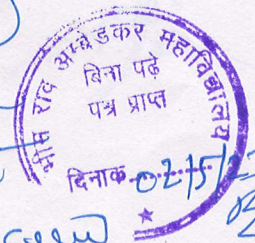 भीम राव अम्बेडकर महाविद्यालय
बिना पढ़े
पत्र प्राप्त
दिनाक 02/5/